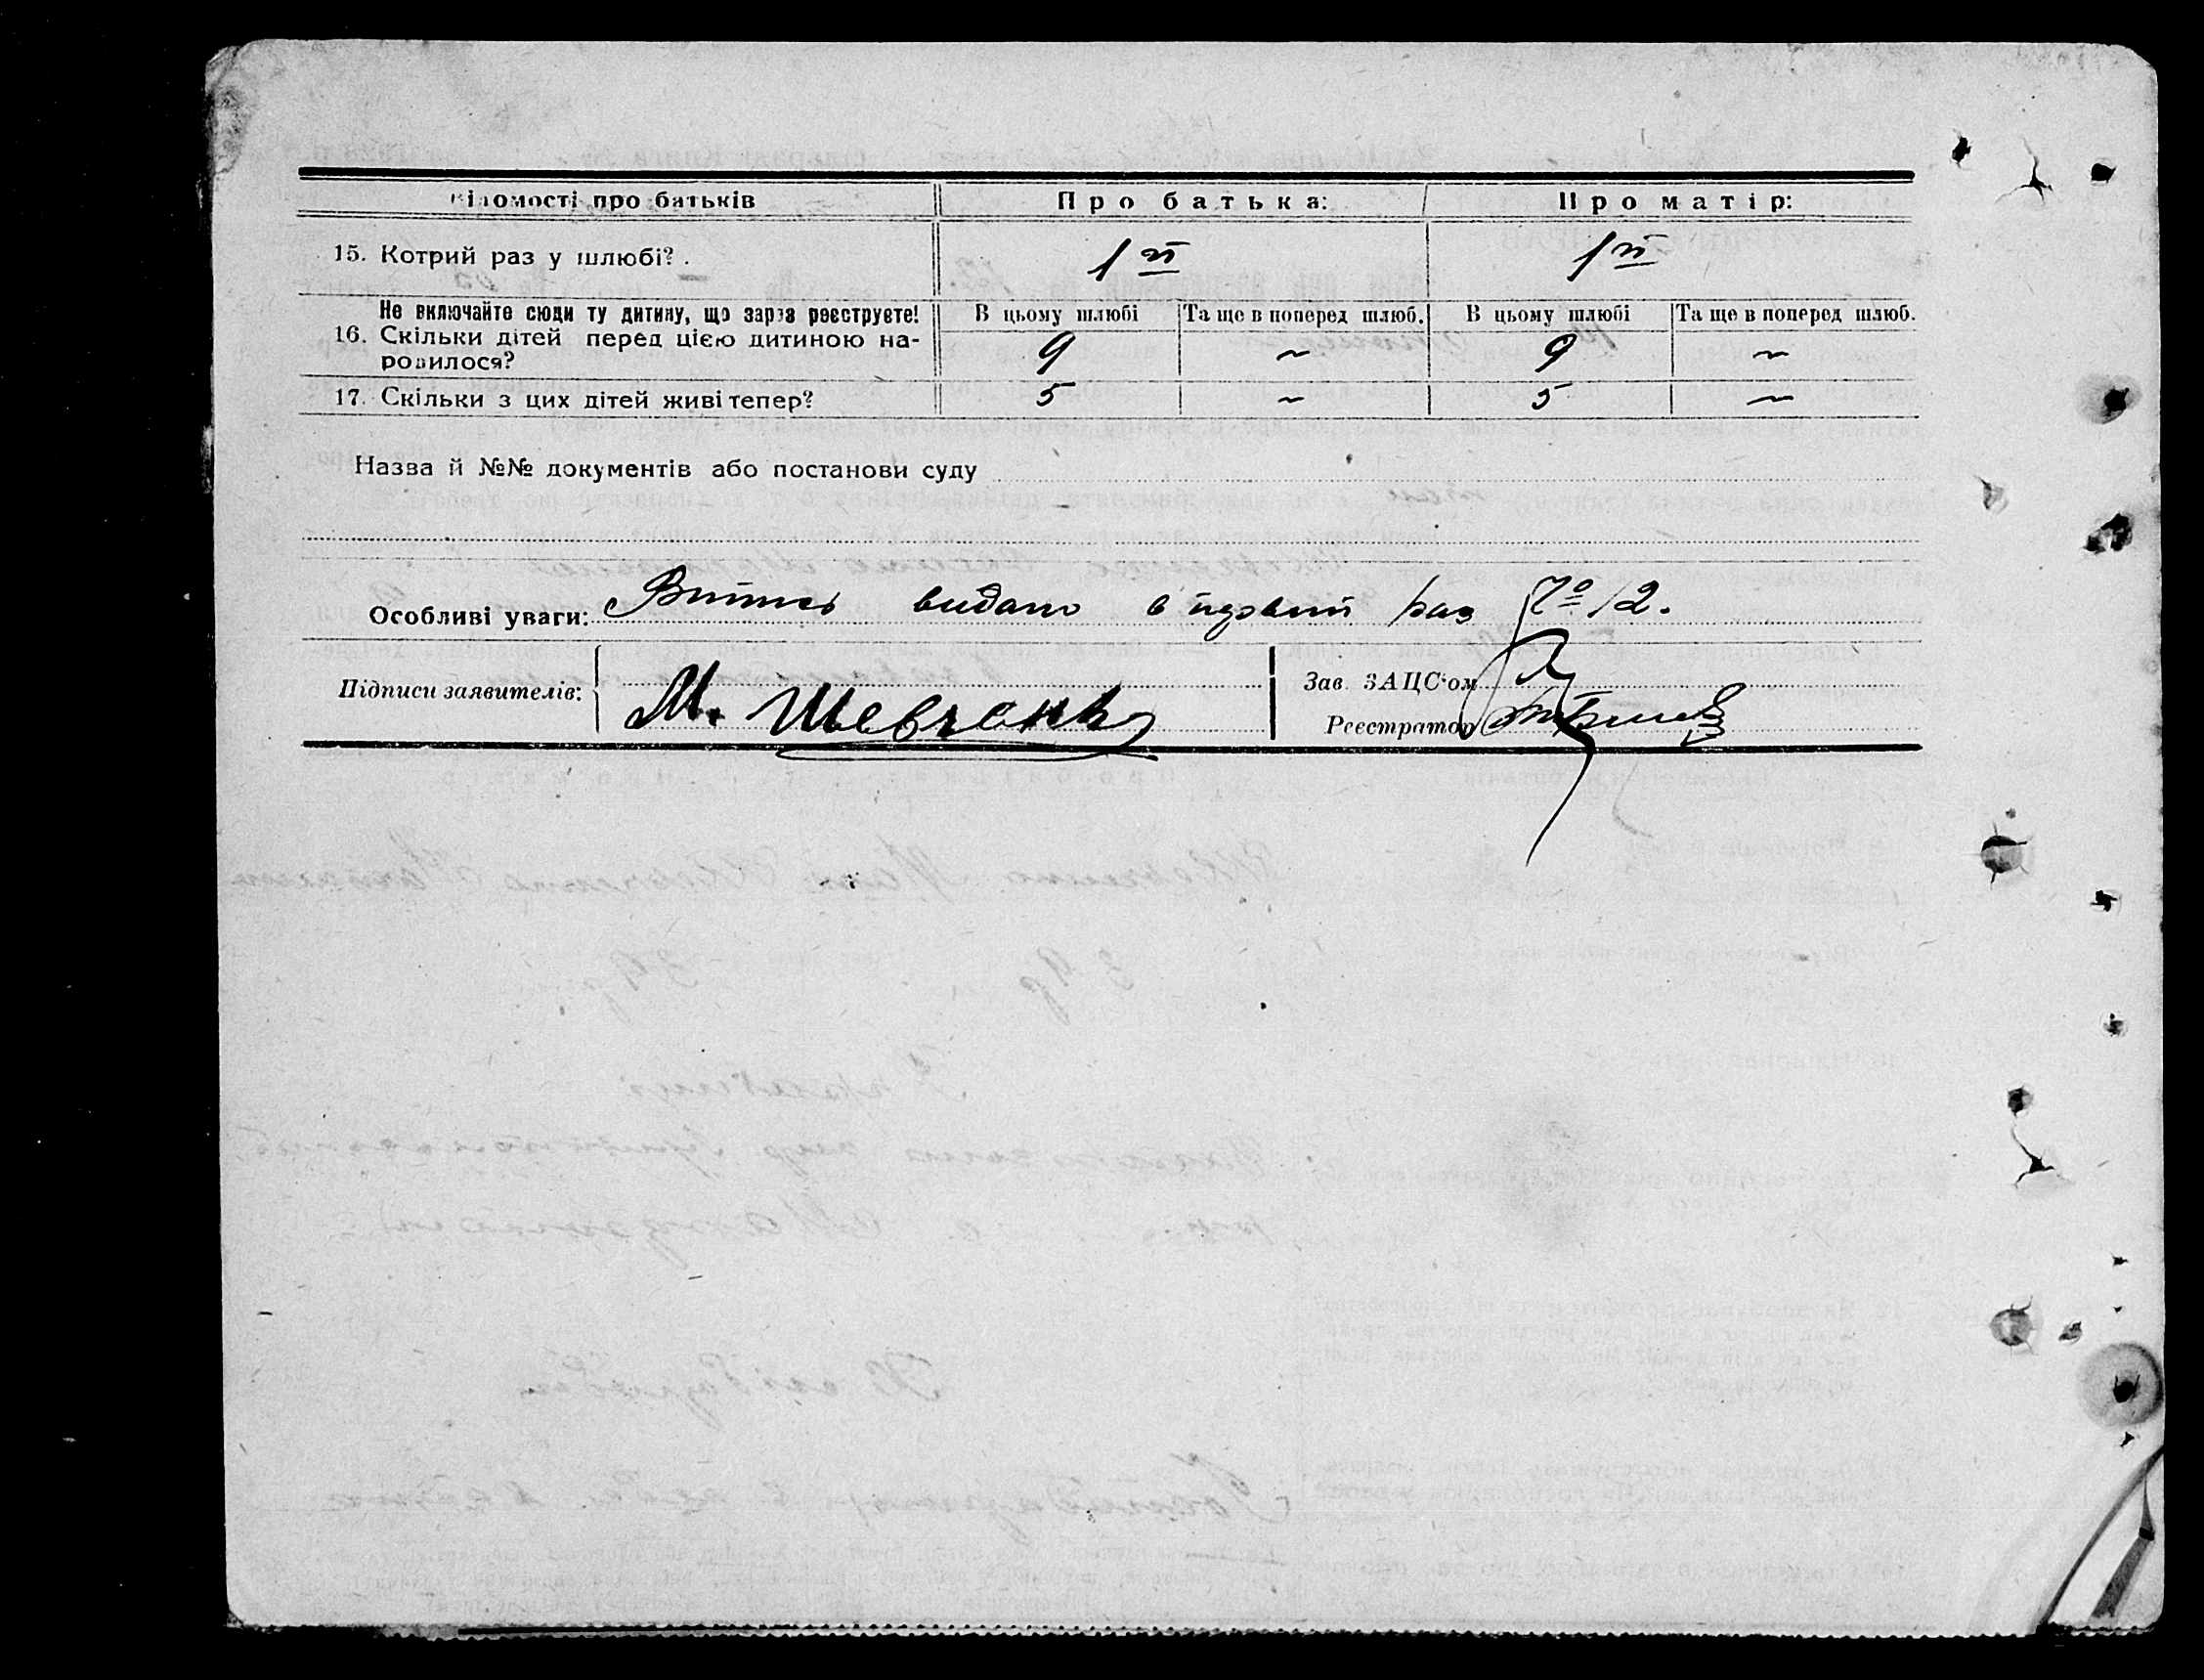 Відомості про батьків Про батька: Про матір:
15. Котрий раз у шлюбі? . 1 й 1 й
Не включайте сюди ту дитину, що зараз реєструєте! В цьому шлюбі Та ще в поперед шлюб. В цьому шлюбі Та ще в поперед шлюб.
16. Скільки дітей перед цією дитиною на-
родилося? 9 ~ 9 ~
17. Скільки з цих дітей живі тепер? 5 ~ 5 ~
Назва й №№ документів або постанови суду
Особливі уваги: Витяг видано в первий раз № 12.
Підписи заявителів: М. Шевченко
Зав. ЗАЦС'ом
Реєстратор